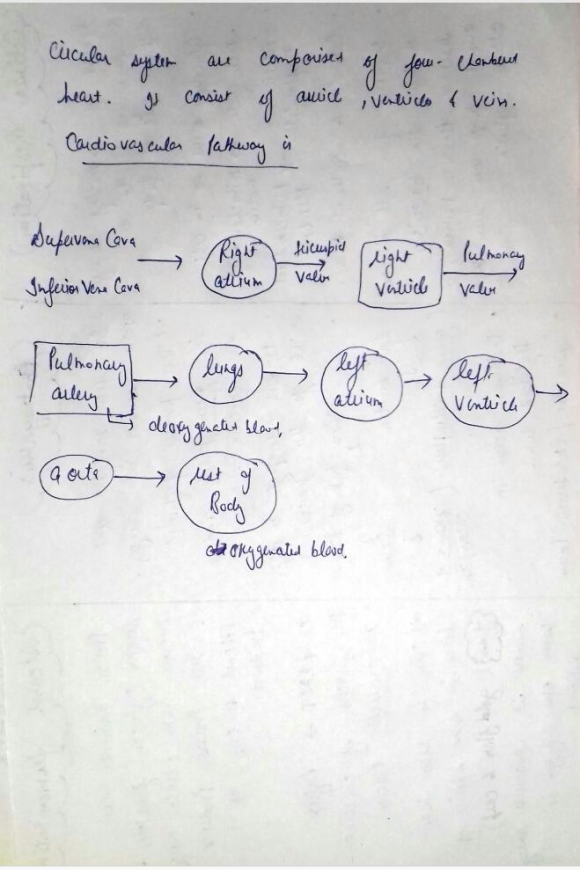 Circular system are comprised of four-chambered
heart. It consist of auricle, ventricle & vein.
Cardiovascular Pathway is
Supervena Cava
Inferior Vena Cava
Right
atrium
tricuspid
valve
right
ventricle
Pulmonary
valve
Pulmonary
artery
deoxygenated blood,
lungs
left
atrium
left
Ventricle
aorta
rest of
Body
oxygenated blood.